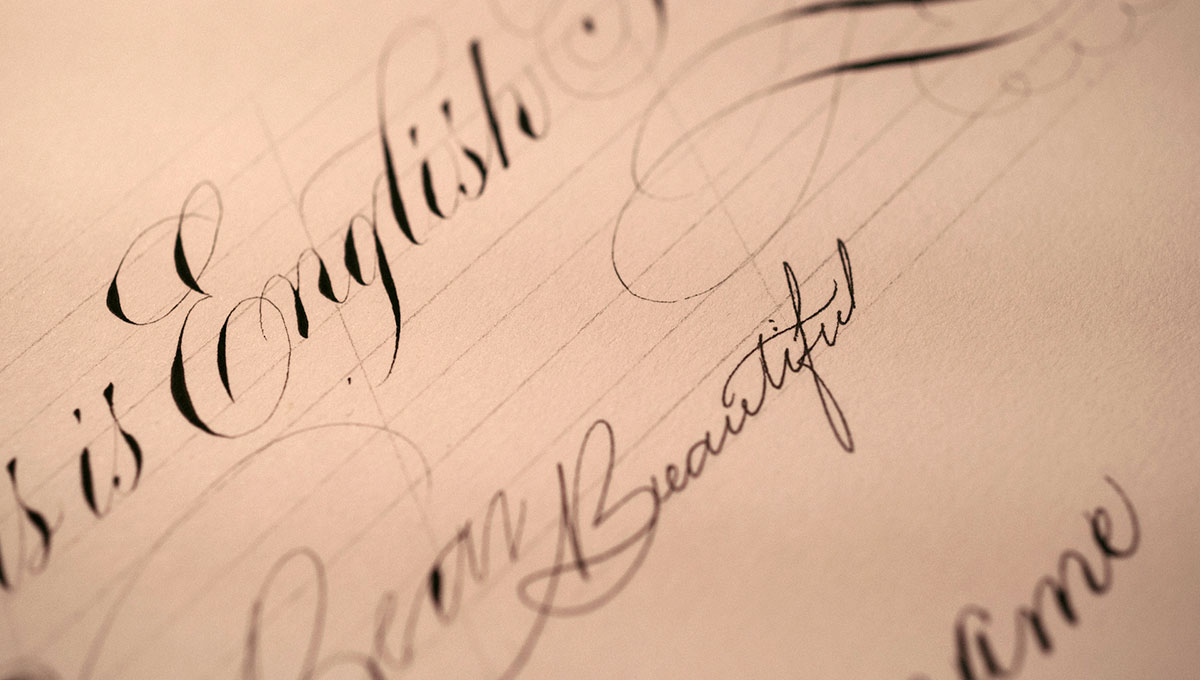 s is English
Beautiful
ame